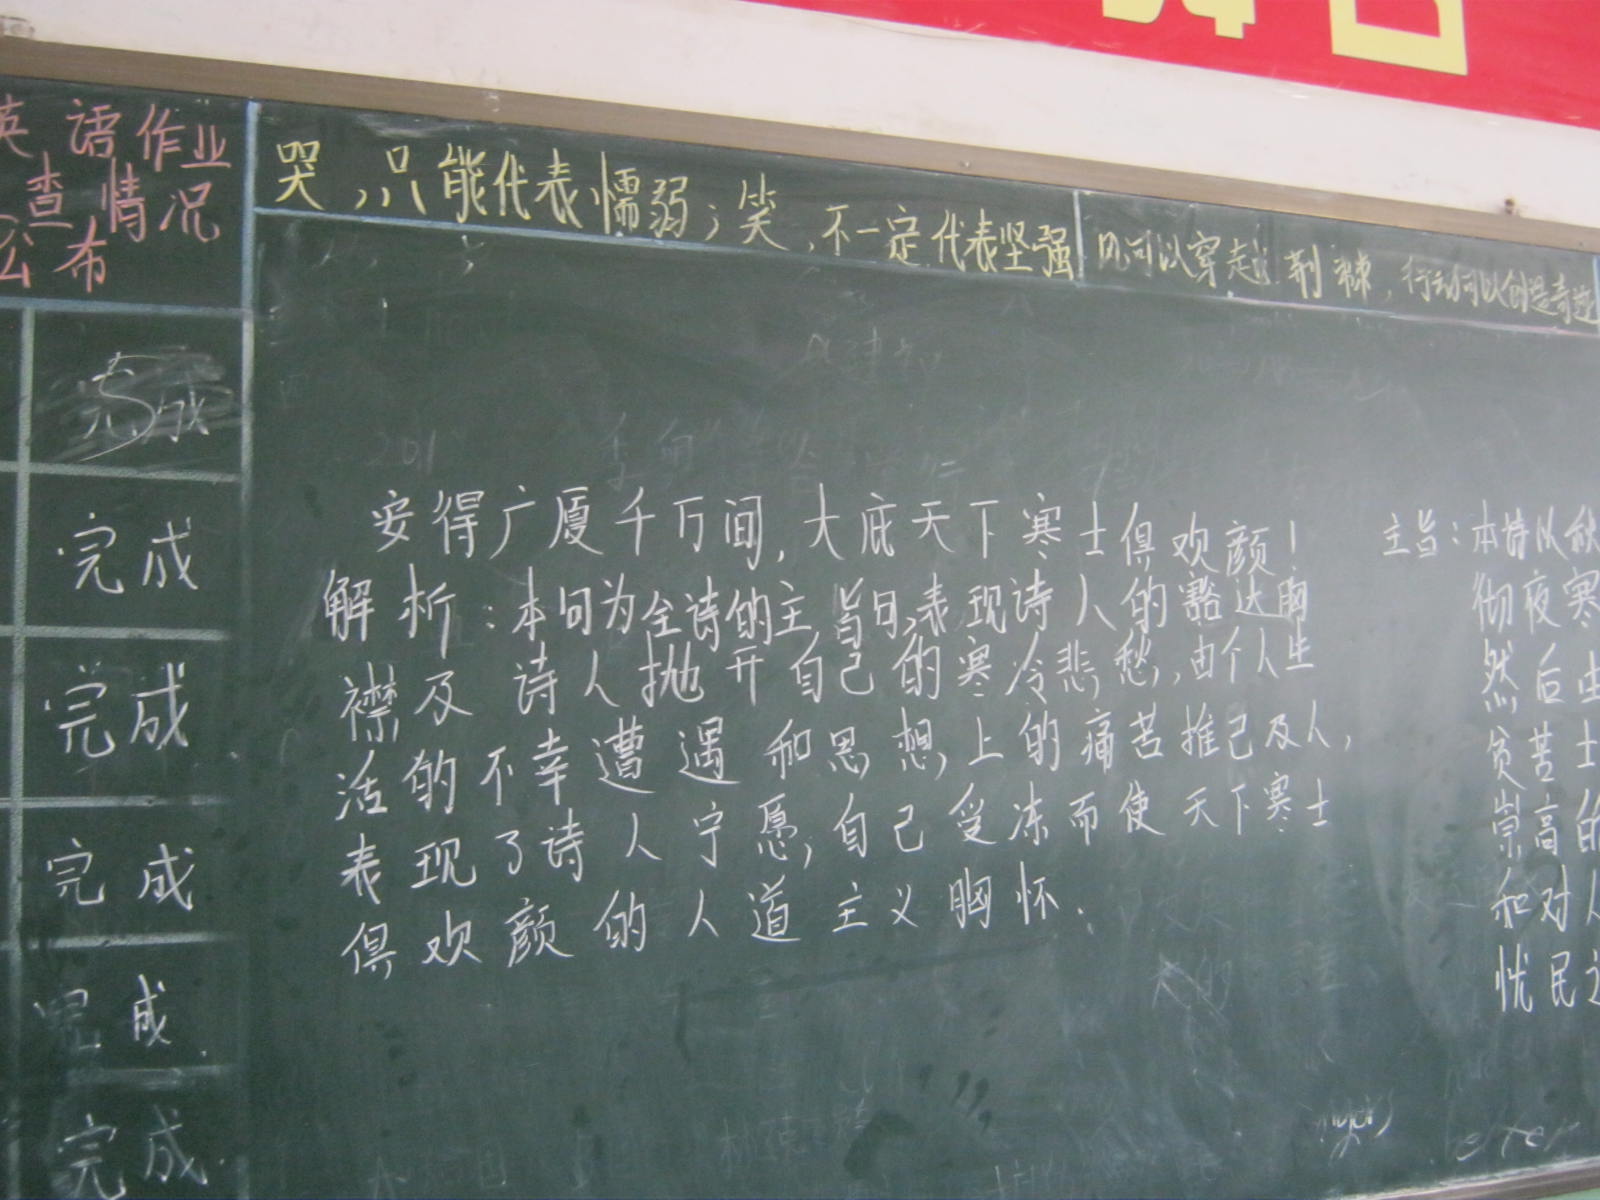 英语作业
查情况
公布
哭,只能代表懦弱;笑,不一定代表坚强
风可以穿越荆棘,行动可以创造奇迹
完成
完成
完成
完成
完成
安得广厦千万间,大庇天下寒士俱欢颜!
解析:本句为全诗的主旨句,表现诗人的豁达胸
襟,及诗人抛开自己的寒冷悲愁,由个人生
活的不幸遭遇和思想上的痛苦推己及人,
表现了诗人宁愿自己受冻而使天下寒士
俱欢颜的人道主义胸怀.
主旨:本诗从秋
彻夜寒
然后由
贫苦士
崇高的
和对人
忧民